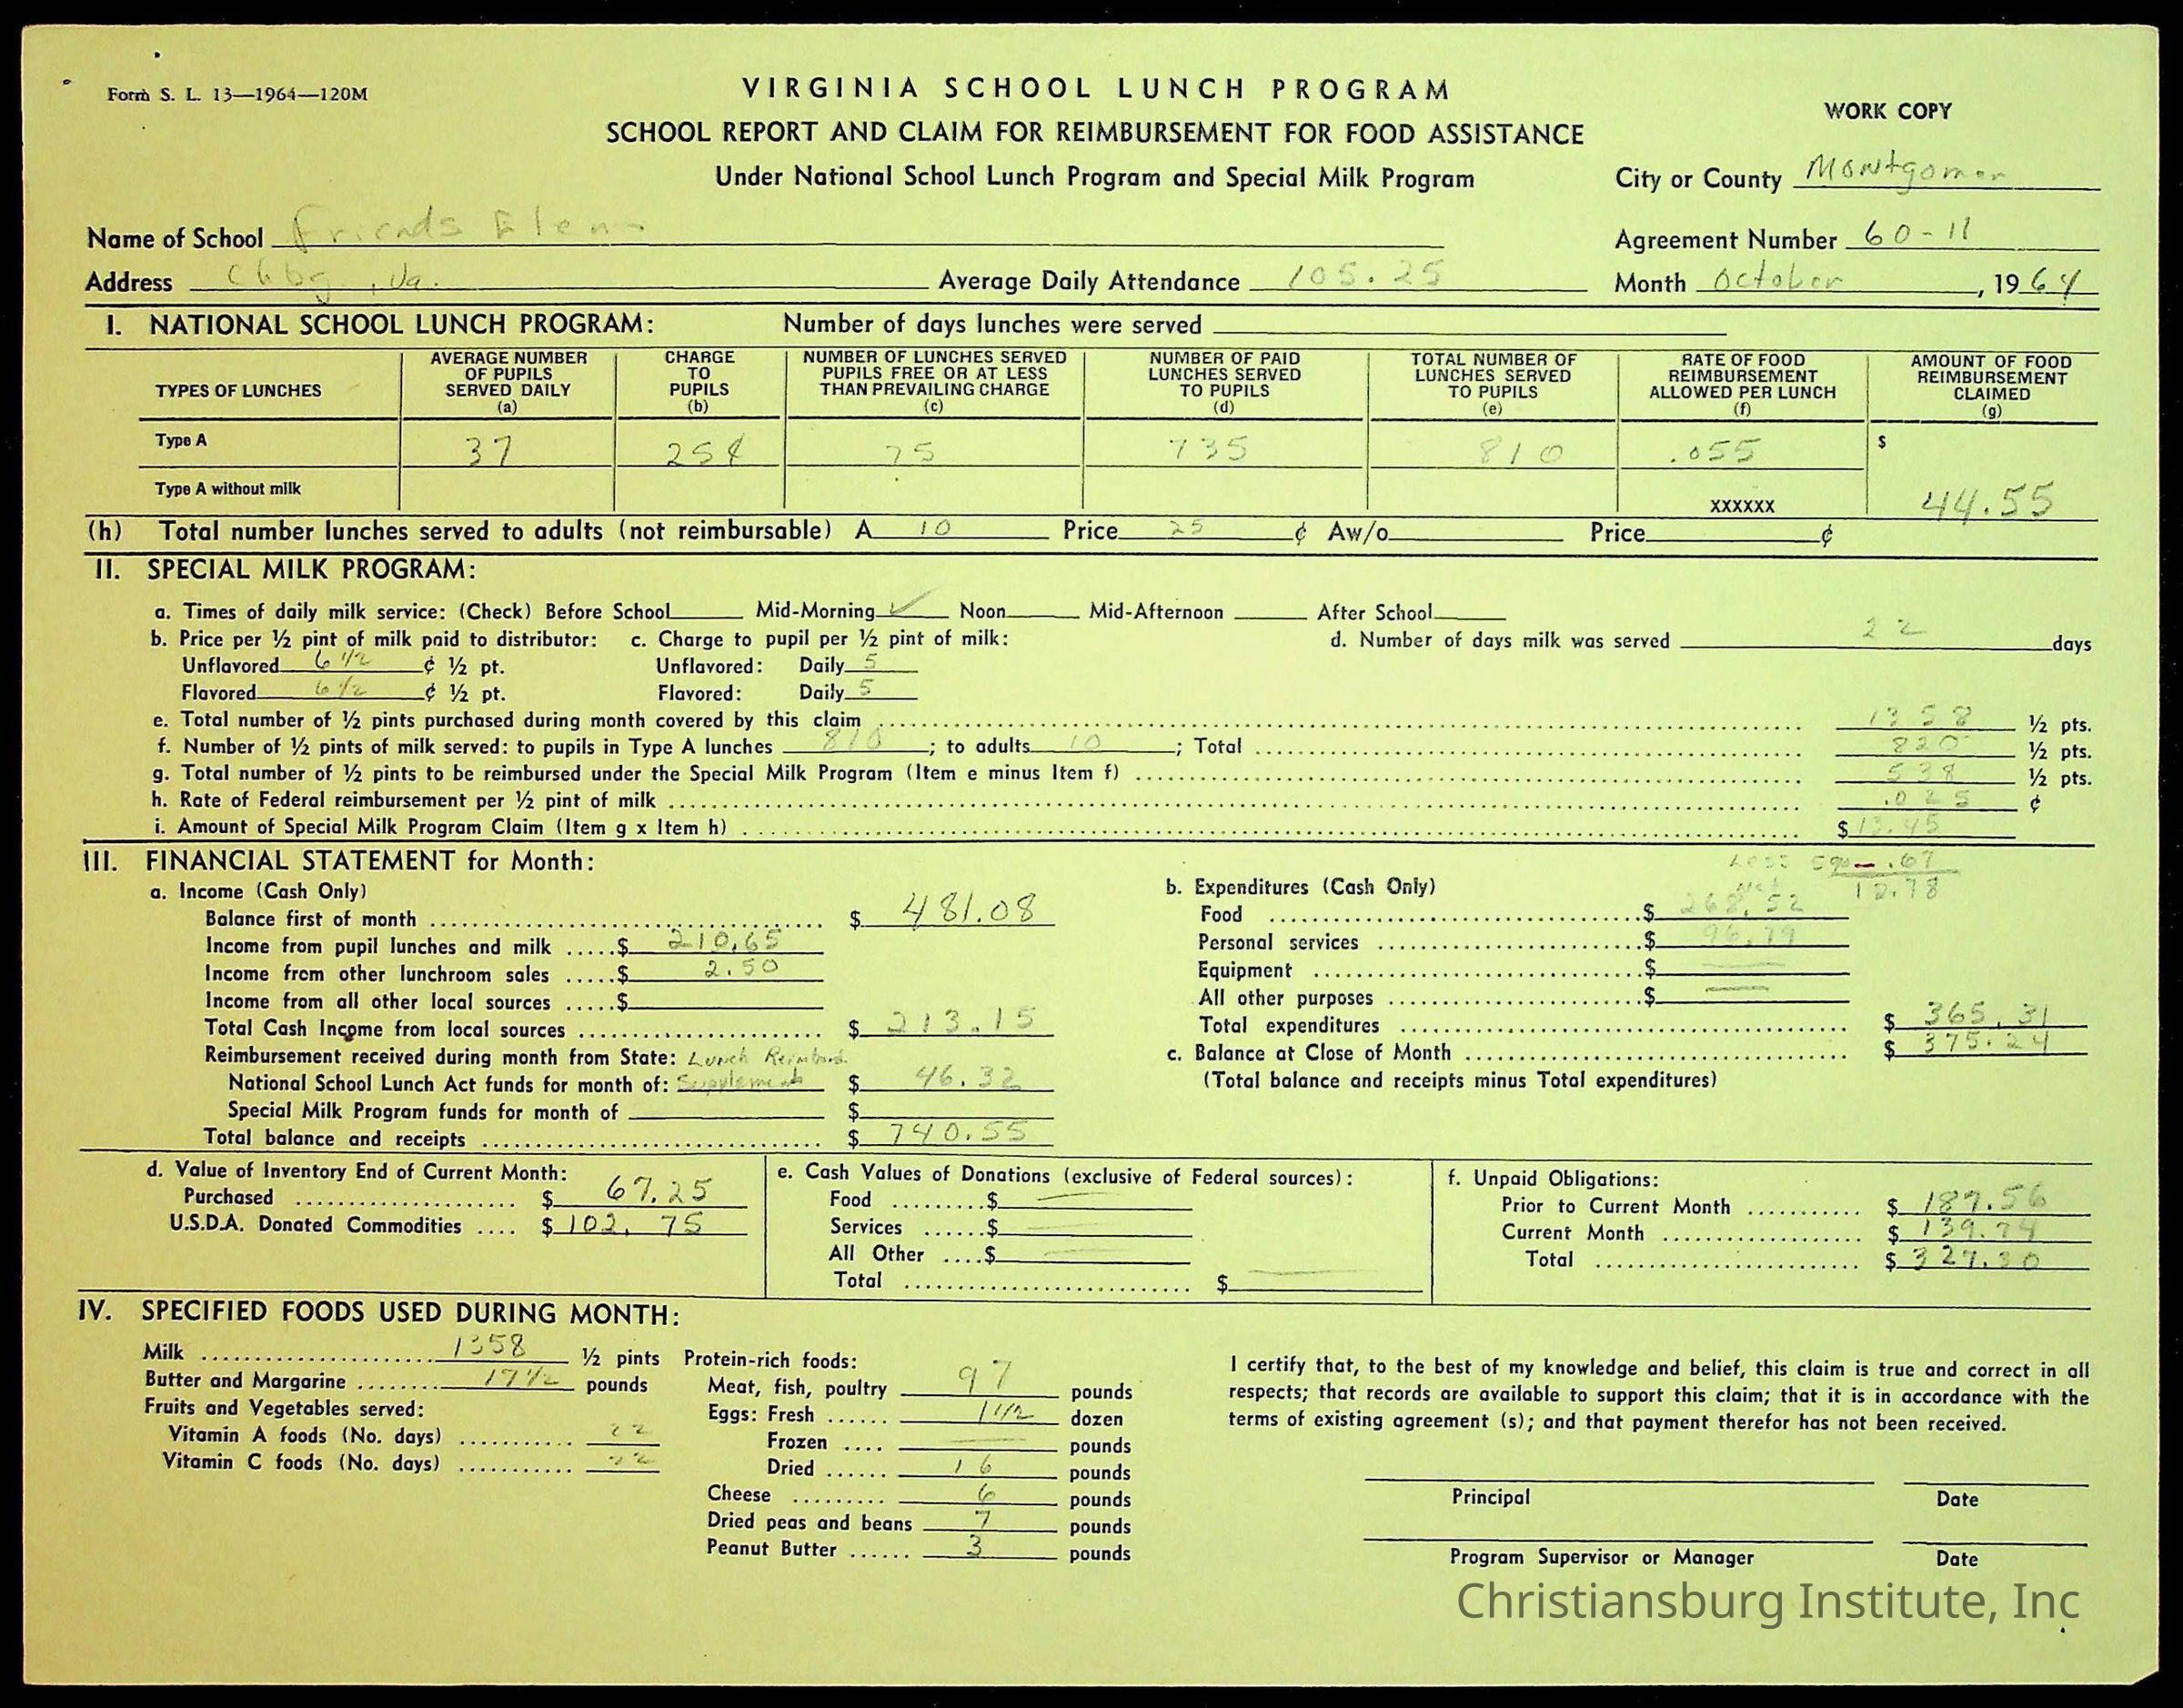 Form S. L. 13—1964—120M
VIRGINIA SCHOOL LUNCH PROGRAM
WORK COPY
SCHOOL REPORT AND CLAIM FOR REIMBURSEMENT FOR FOOD ASSISTANCE
Under National School Lunch Program and Special Milk Program
City or County Montgomer
Name of School Friends Elem
Agreement Number 60-11
Address Chbg, Va. Average Daily Attendance 105.25 Month October, 1964
I. NATIONAL SCHOOL LUNCH PROGRAM: Number of days lunches were served
TYPES OF LUNCHES
AVERAGE NUMBER OF PUPILS SERVED DAILY (a)
CHARGE TO PUPILS (b)
NUMBER OF LUNCHES SERVED PUPILS FREE OR AT LESS THAN PREVAILING CHARGE (c)
NUMBER OF PAID LUNCHES SERVED TO PUPILS (d)
TOTAL NUMBER OF LUNCHES SERVED TO PUPILS (e)
RATE OF FOOD REIMBURSEMENT ALLOWED PER LUNCH (f)
AMOUNT OF FOOD REIMBURSEMENT CLAIMED (g)
Type A 37 25¢ 75 735 810 .055 $
Type A without milk XXXXXX 44.55
(h) Total number lunches served to adults (not reimbursable) A 10 Price 25 ¢ Aw/o Price ¢
II. SPECIAL MILK PROGRAM:
a. Times of daily milk service: (Check) Before School Mid-Morning ✓ Noon Mid-Afternoon After School
b. Price per ½ pint of milk paid to distributor: c. Charge to pupil per ½ pint of milk: d. Number of days milk was served 22 days
Unflavored 6 1/2 ¢ ½ pt. Unflavored: Daily 5
Flavored 6 1/2 ¢ ½ pt. Flavored: Daily 5
e. Total number of ½ pints purchased during month covered by this claim 1358 ½ pts.
f. Number of ½ pints of milk served: to pupils in Type A lunches 810; to adults 10; Total 820 ½ pts.
g. Total number of ½ pints to be reimbursed under the Special Milk Program (Item e minus Item f) 538 ½ pts.
h. Rate of Federal reimbursement per ½ pint of milk .025 ¢
i. Amount of Special Milk Program Claim (Item g x Item h) $ 13.45
III. FINANCIAL STATEMENT for Month:
Less 5% — .67
Net 12.78
a. Income (Cash Only)
Balance first of month $ 481.08
Income from pupil lunches and milk $ 210.65
Income from other lunchroom sales $ 2.50
Income from all other local sources $
Total Cash Income from local sources $ 213.15
Reimbursement received during month from State: Lunch
National School Lunch Act funds for month of: Supplement $ 46.32
Special Milk Program funds for month of $
Total balance and receipts $ 740.55
b. Expenditures (Cash Only)
Food $ 268.52
Personal services $ 96.79
Equipment $
All other purposes $
Total expenditures $ 365.31
c. Balance at Close of Month $ 375.24
(Total balance and receipts minus Total expenditures)
d. Value of Inventory End of Current Month:
Purchased $ 67.25
U.S.D.A. Donated Commodities $ 102.75
e. Cash Values of Donations (exclusive of Federal sources):
Food $
Services $
All Other $
Total $
f. Unpaid Obligations:
Prior to Current Month $ 187.56
Current Month $ 139.74
Total $ 327.30
IV. SPECIFIED FOODS USED DURING MONTH:
Milk 1358 ½ pints
Butter and Margarine 17 1/2 pounds
Fruits and Vegetables served:
Vitamin A foods (No. days) 22
Vitamin C foods (No. days) 22
Protein-rich foods:
Meat, fish, poultry 97 pounds
Eggs: Fresh 1 1/2 dozen
Frozen pounds
Dried 16 pounds
Cheese 6 pounds
Dried peas and beans 7 pounds
Peanut Butter 3 pounds
I certify that, to the best of my knowledge and belief, this claim is true and correct in all
respects; that records are available to support this claim; that it is in accordance with the
terms of existing agreement (s); and that payment therefor has not been received.
Principal Date
Program Supervisor or Manager Date
Christiansburg Institute, Inc